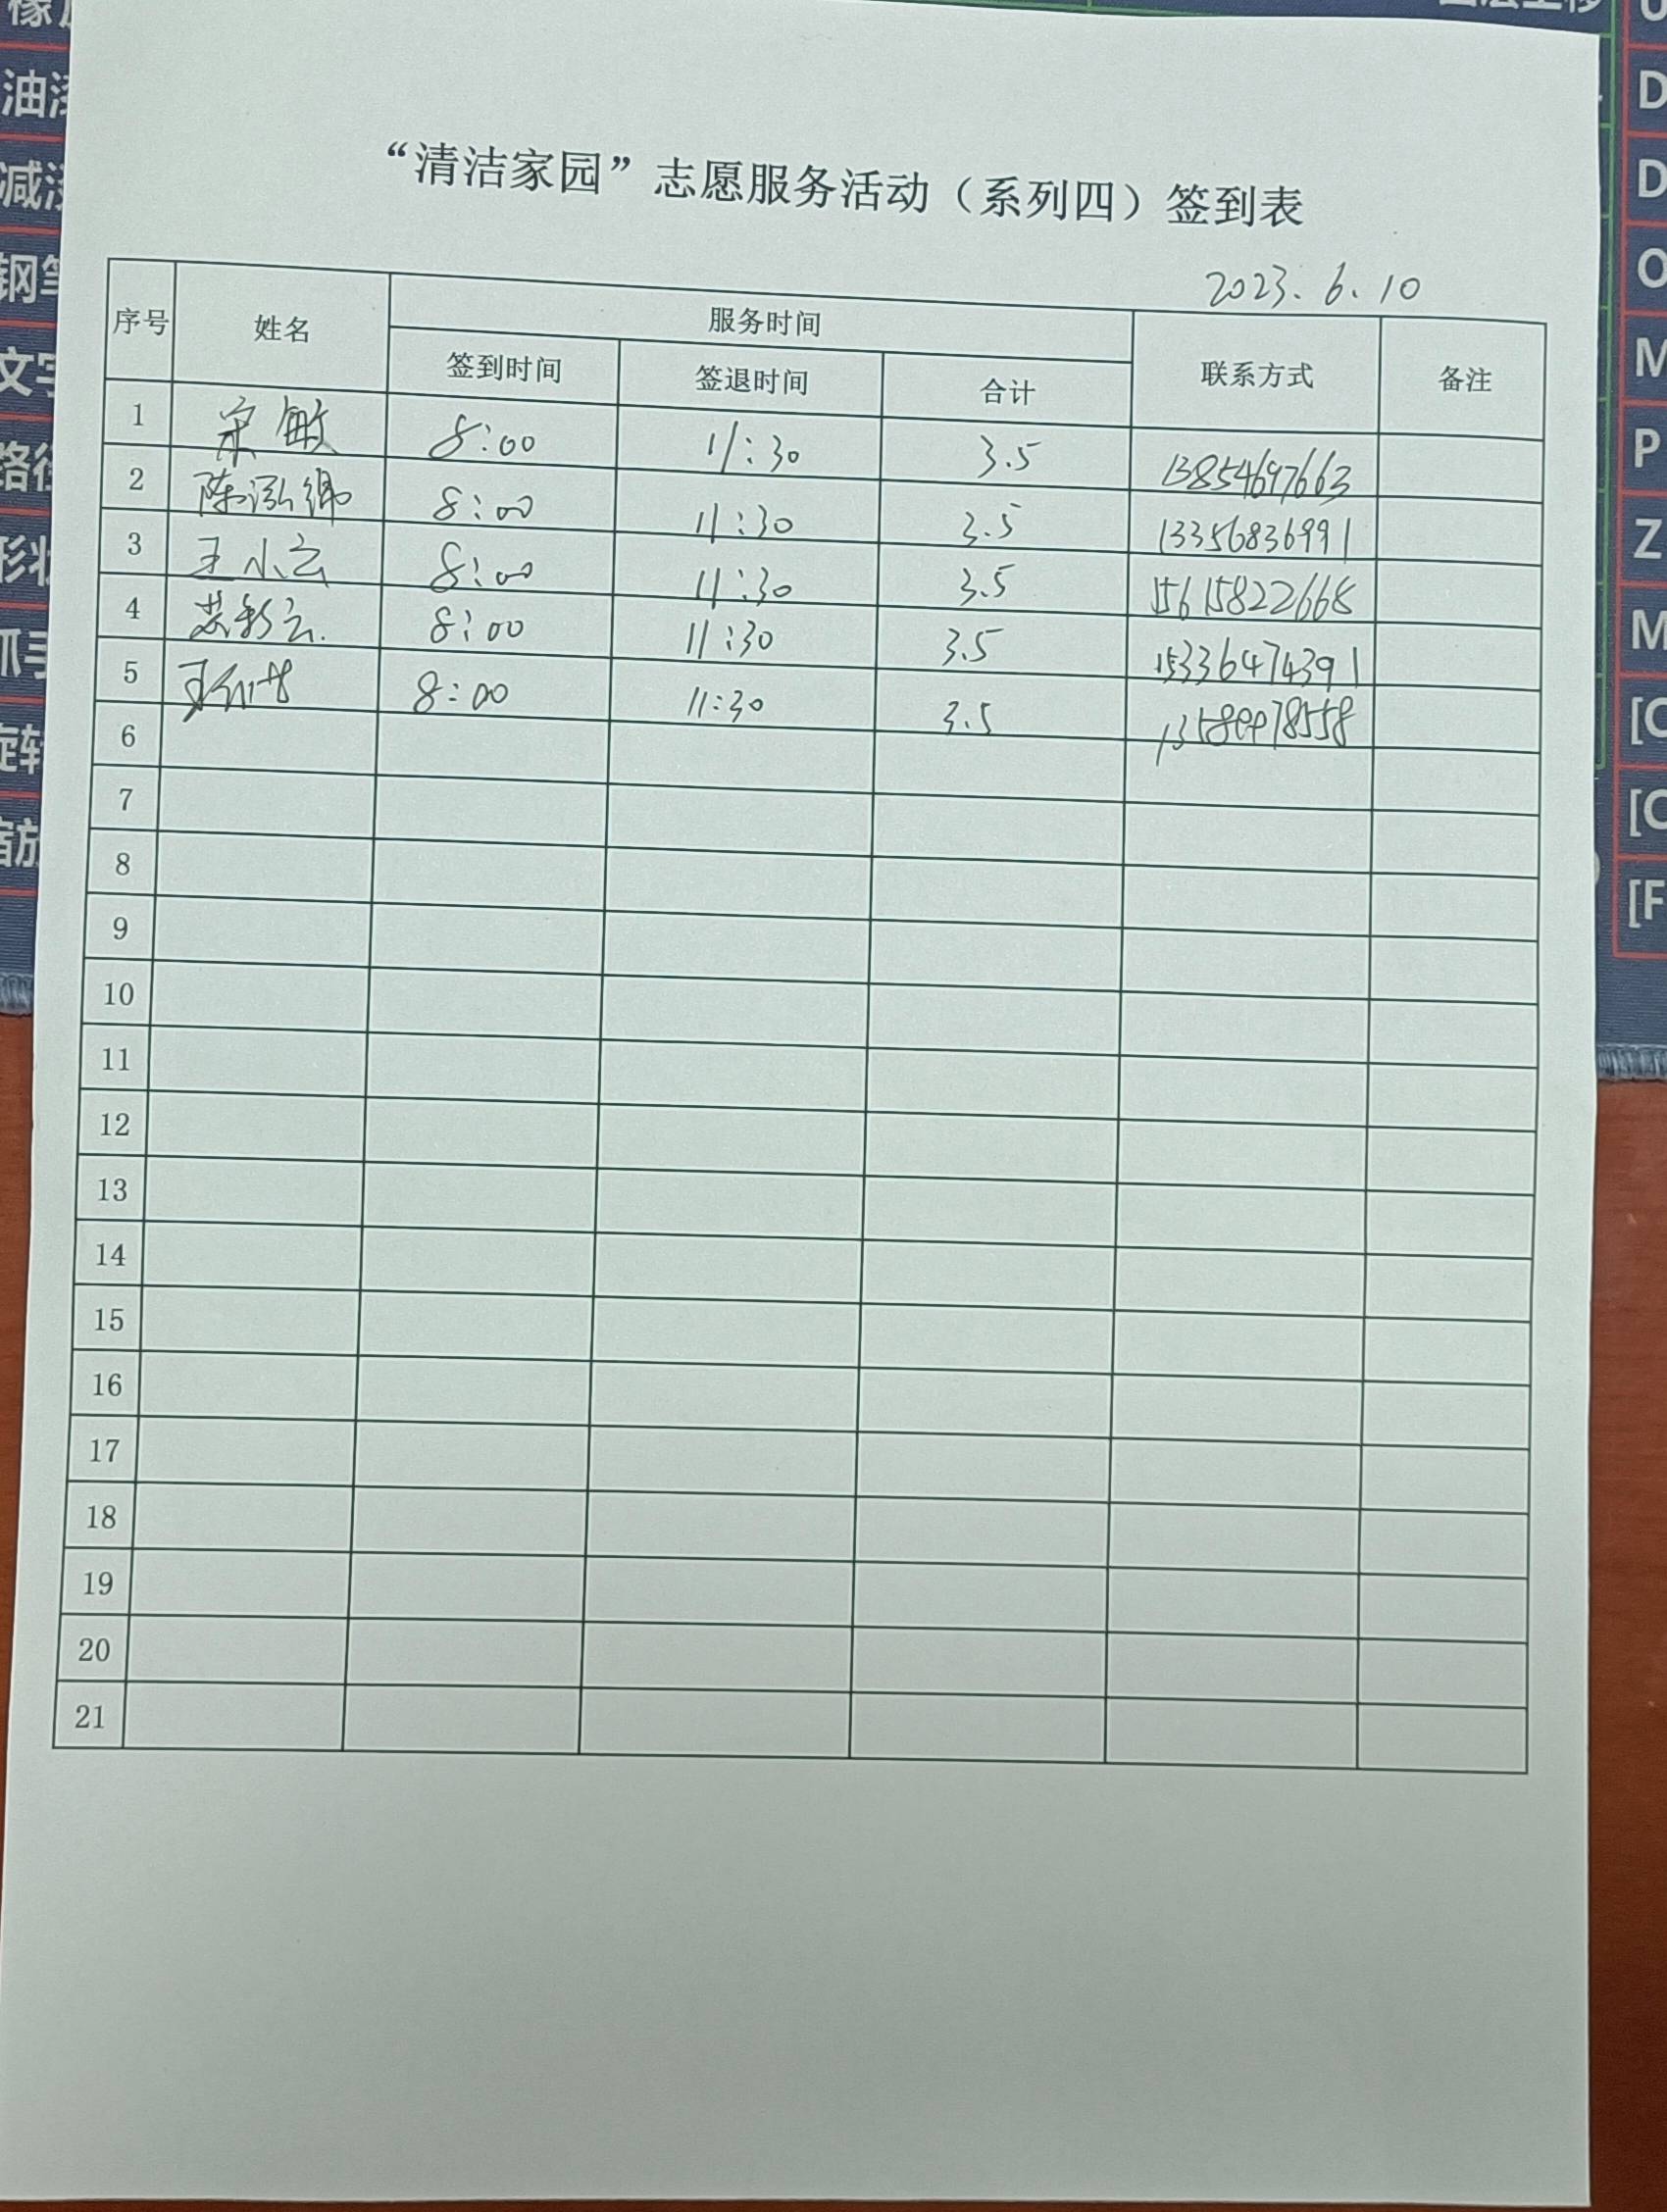 “清洁家园”志愿服务活动（系列四）签到表
2023.6.10
序号 姓名 服务时间 联系方式 备注
签到时间 签退时间 合计
1 宋敏 8:00 11:30 3.5 13854697663
2 陈泓锦 8:00 11:30 3.5 13356836991
3 王小云 8:00 11:30 3.5 15615822668
4 苏彩云 8:00 11:30 3.5 15336474391
5 8:00 11:30 3.5
6
7
8
9
10
11
12
13
14
15
16
17
18
19
20
21
油漆
钢笔
文字
路径
形状
抓手
旋转
缩放
D
D
O
M
P
Z
M